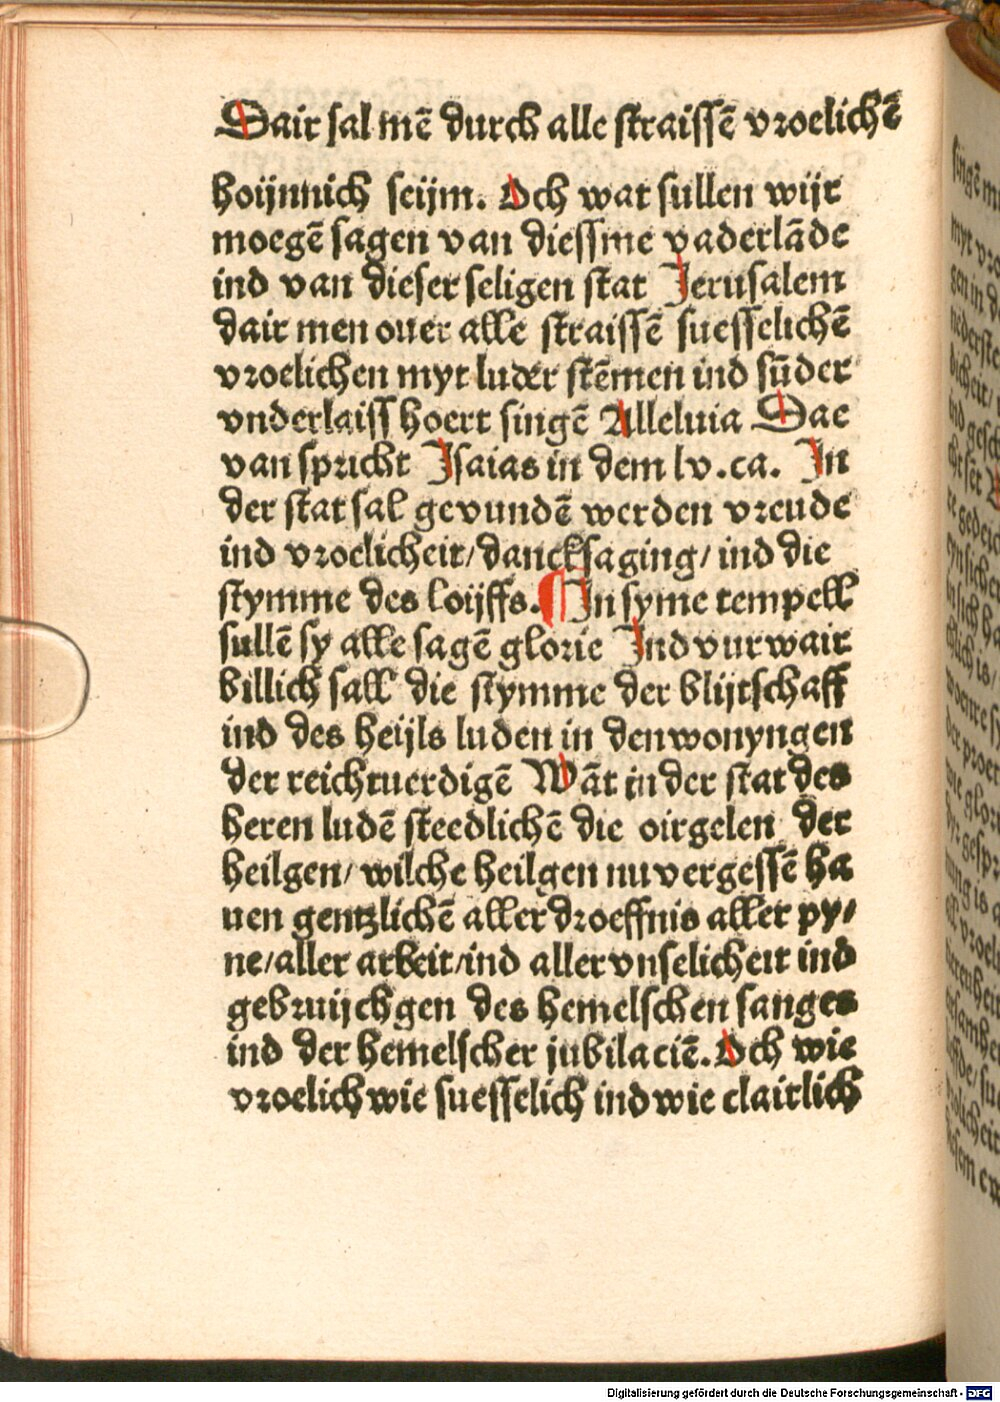 Dair sal mē durch alle straissē vroelichē
hoijnnich seijm. Och wat sullen wijr
moegē sagen van diessme vaderlāde
ind van dieser seligen stat Jerusalem
dair men ouer alle straissē suesselichē
vroelichen myt luder stēmen ind sūder
vnderlaiss hoert singē Alleluia Dae
van spricht Jsaias in dem lv. ca. Jn
der stat sal gevundē werden vreude
ind vroelicheit/dancksaging/ ind die
stymme des loijffs. ¶Jn syme tempell
sullē sy alle sagē glorie Jnd vurwair
billich sall die stymme der blijtschaff
ind des heijls luden in denwonyngen
der reichtuerdigē Wāt in der stat des
heren ludē steedlichē die oirgelen der
heilgen/ wilche heilgen nu vergessē ha
uen gentzlichē aller droeffnis aller py/
ne/aller arbeit/ind aller vnselicheit ind
gebruijchgen des hemelschen sanges
ind der hemelscher jubilaciē. Och wie
vroelich wie suesselich ind wie clairlich
Digitalisierung gefördert durch die Deutsche Forschungsgemeinschaft - DFG